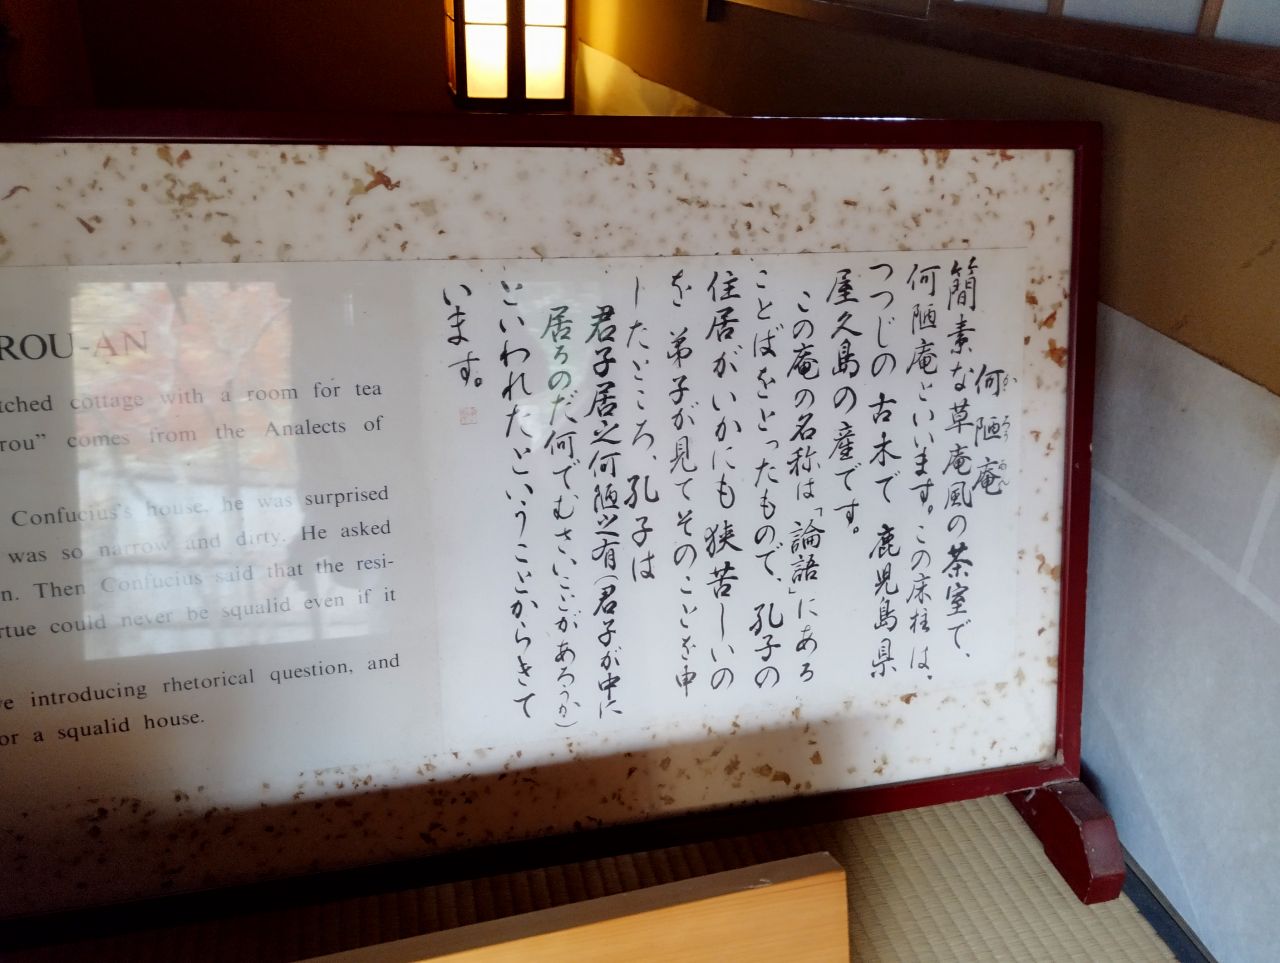 何陋庵
かろうあん
簡素な草庵風の茶室で、
何陋庵といいます。この床柱は、
つつじの古木で鹿児島県
屋久島の産です。
この庵の名称は「論語」にある
ことばをとったもので、孔子の
住居がいかにも狭苦しいの
を弟子が見てそのことを申
したところ、孔子は
君子居之何陋之有(君子が中に
居るのだ何でむさいことがあろうか)
といわれたということからきて
います。
ROU-AN
tched cottage with a room for tea
rou” comes from the Analects of
Confucius's house, he was surprised
was so narrow and dirty. He asked
n. Then Confucius said that the resi-
rtue could never be squalid even if it
ve introducing rhetorical question, and
or a squalid house.